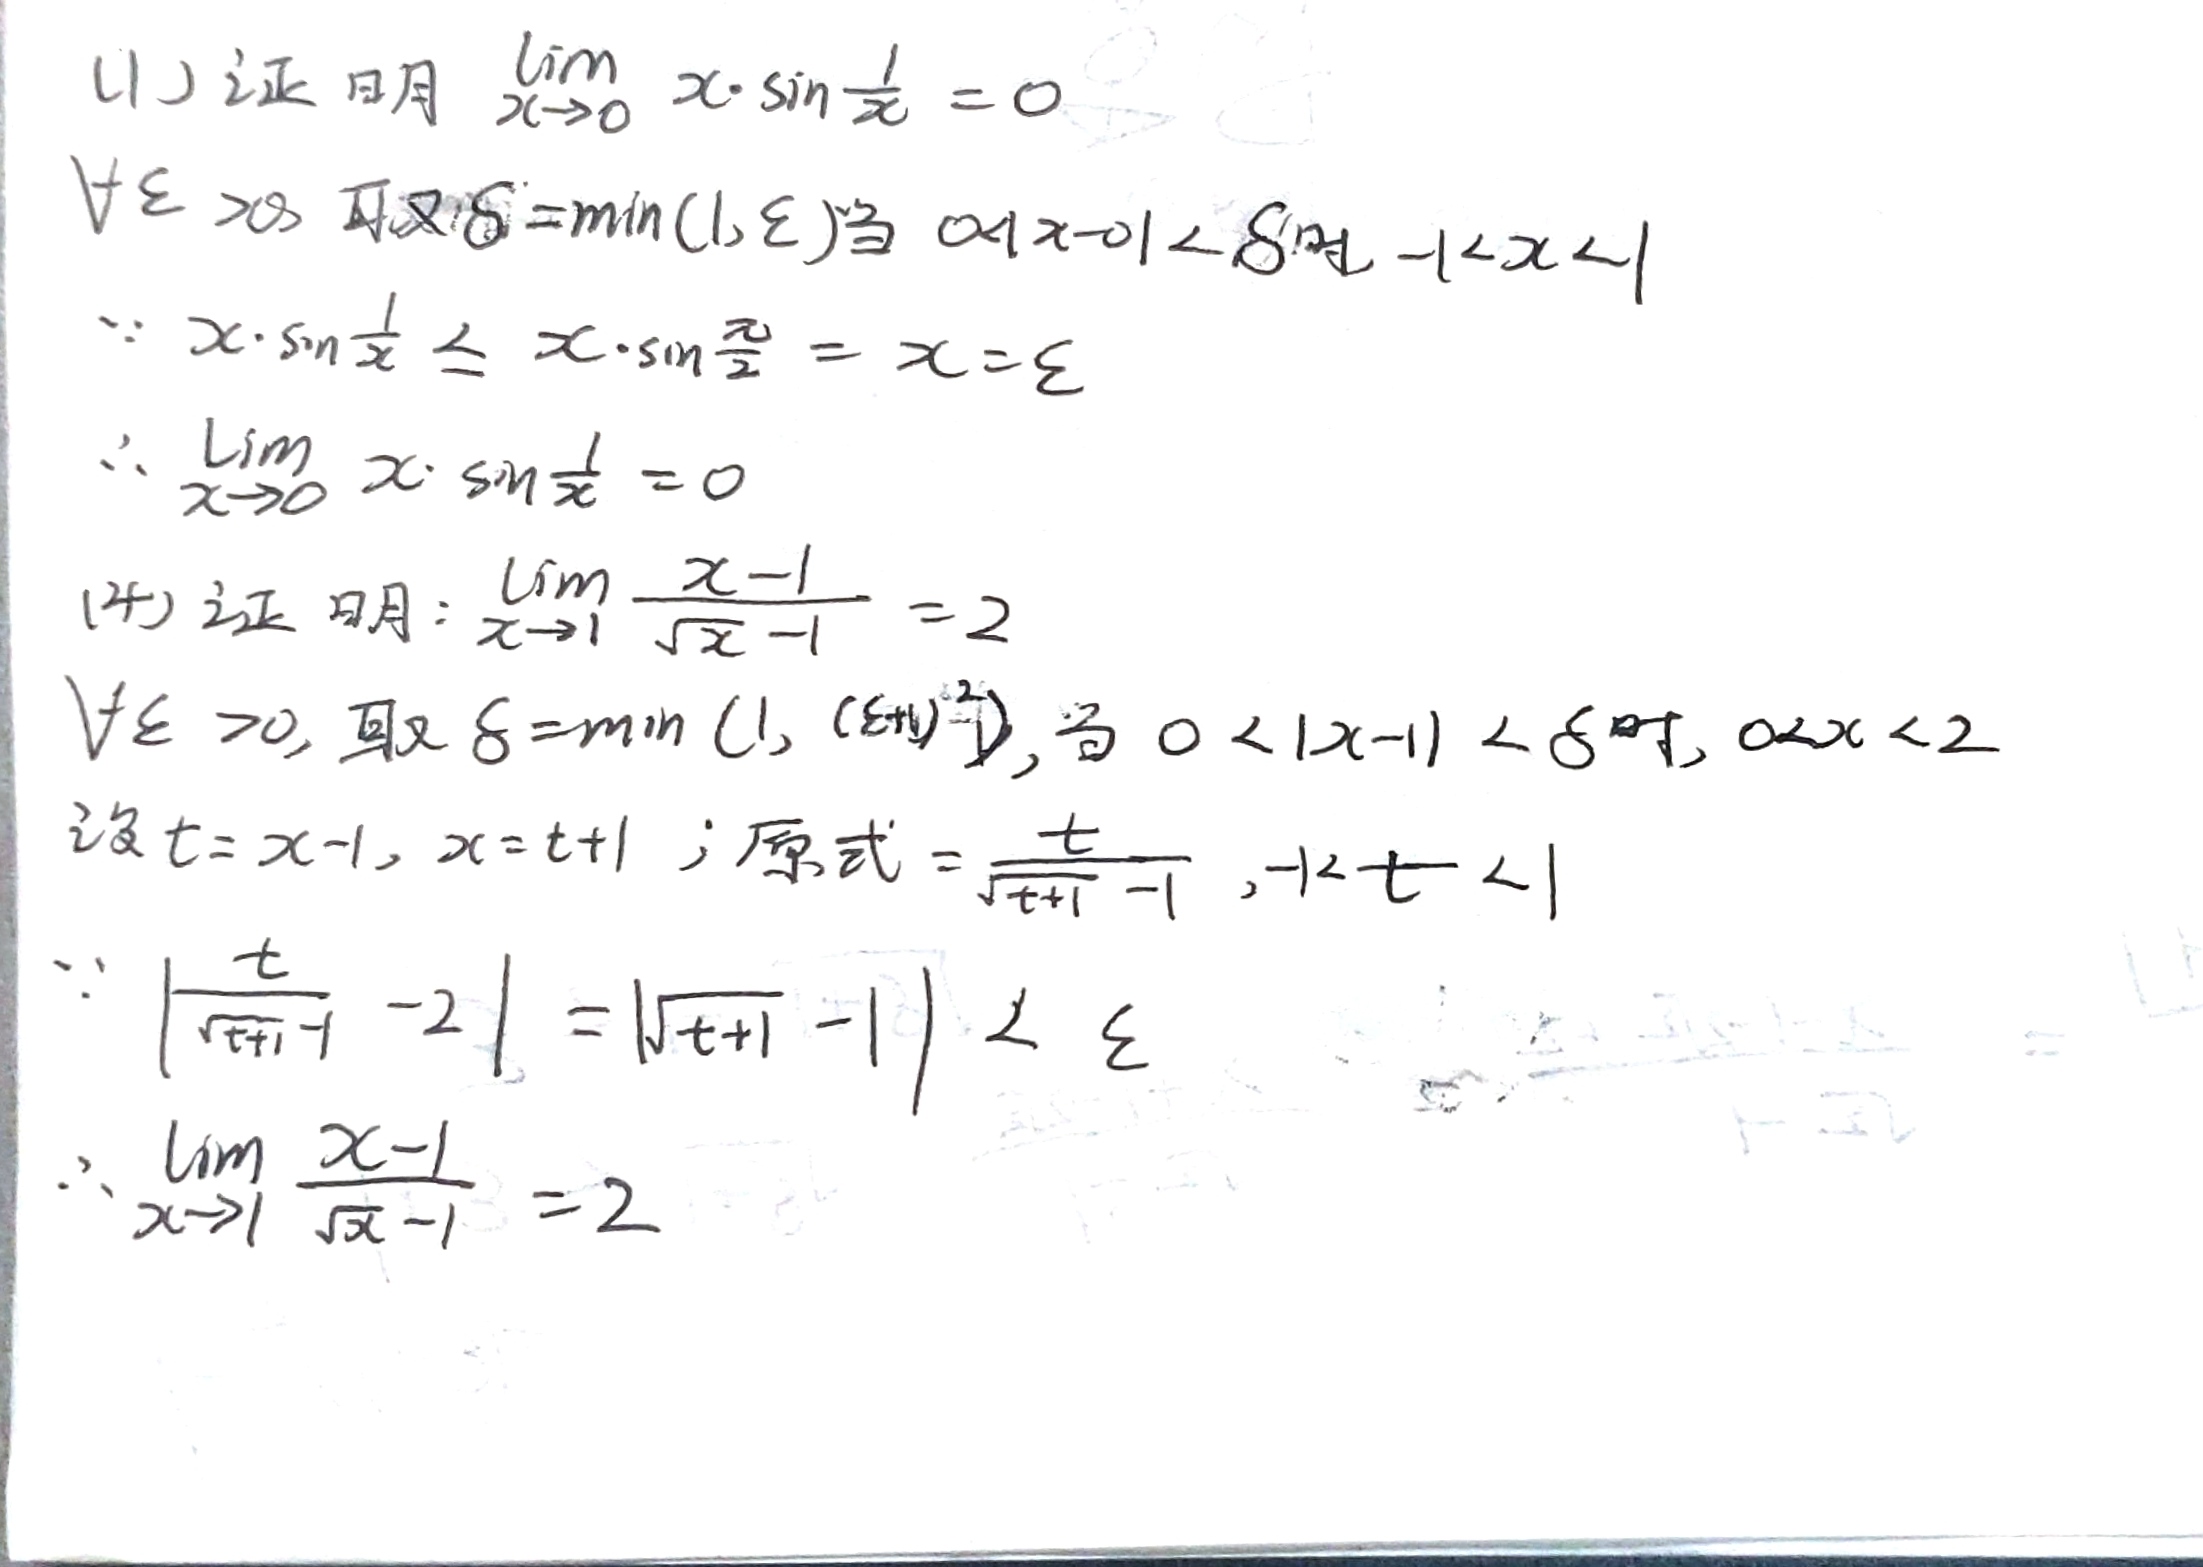 (1) 证明 lim x→0 x·sin 1/x = 0
∀ε >0, 取 δ=min(1, ε) 当 0<|x-0|<δ时, -1<x<1
∵ x·sin 1/x ≤ x·sin π/2 = x = ε
∴ lim x→0 x·sin 1/x = 0
(4) 证明: lim x→1 (x-1)/(√x -1) = 2
∀ε >0, 取 δ=min (1, (ε+1)²-1), 当 0<|x-1|<δ时, 0<x<2
设 t=x-1, x=t+1 ; 原式= t/(√(t+1) -1) , -1<t<1
∵ | t/(√(t+1) -1) -2 | = |√(t+1) -1| < ε
∴ lim x→1 (x-1)/(√x -1) = 2